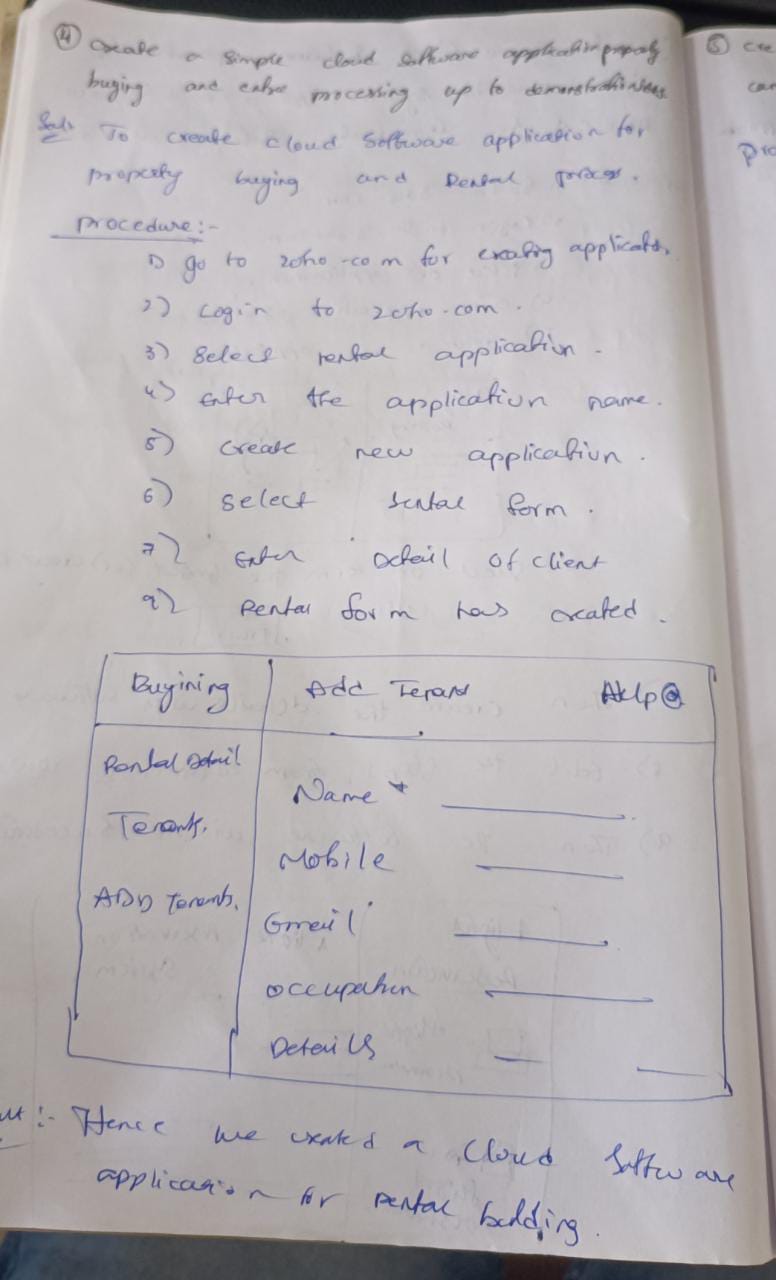 ④ Create a simple cloud software application property
buying and processing up to demonstration
Sol:- To create cloud Software application for
property buying and Rental process.
procedure:-
1) go to zoho.com for creating applicatio.
2) Login to zoho.com.
3) Select rental application.
4) Enter the application name.
5) Create new application.
6) Select rental form.
7) Enter Detail of client
9) Rental form has created.
Buyining Add Tenant Help
Rental detail
Name *
Tenants.
Mobile
ADD Tenants.
Gmail
Occupation
Details
:- Hence we created a Cloud Software
application for rental bulding.
⑤ cre